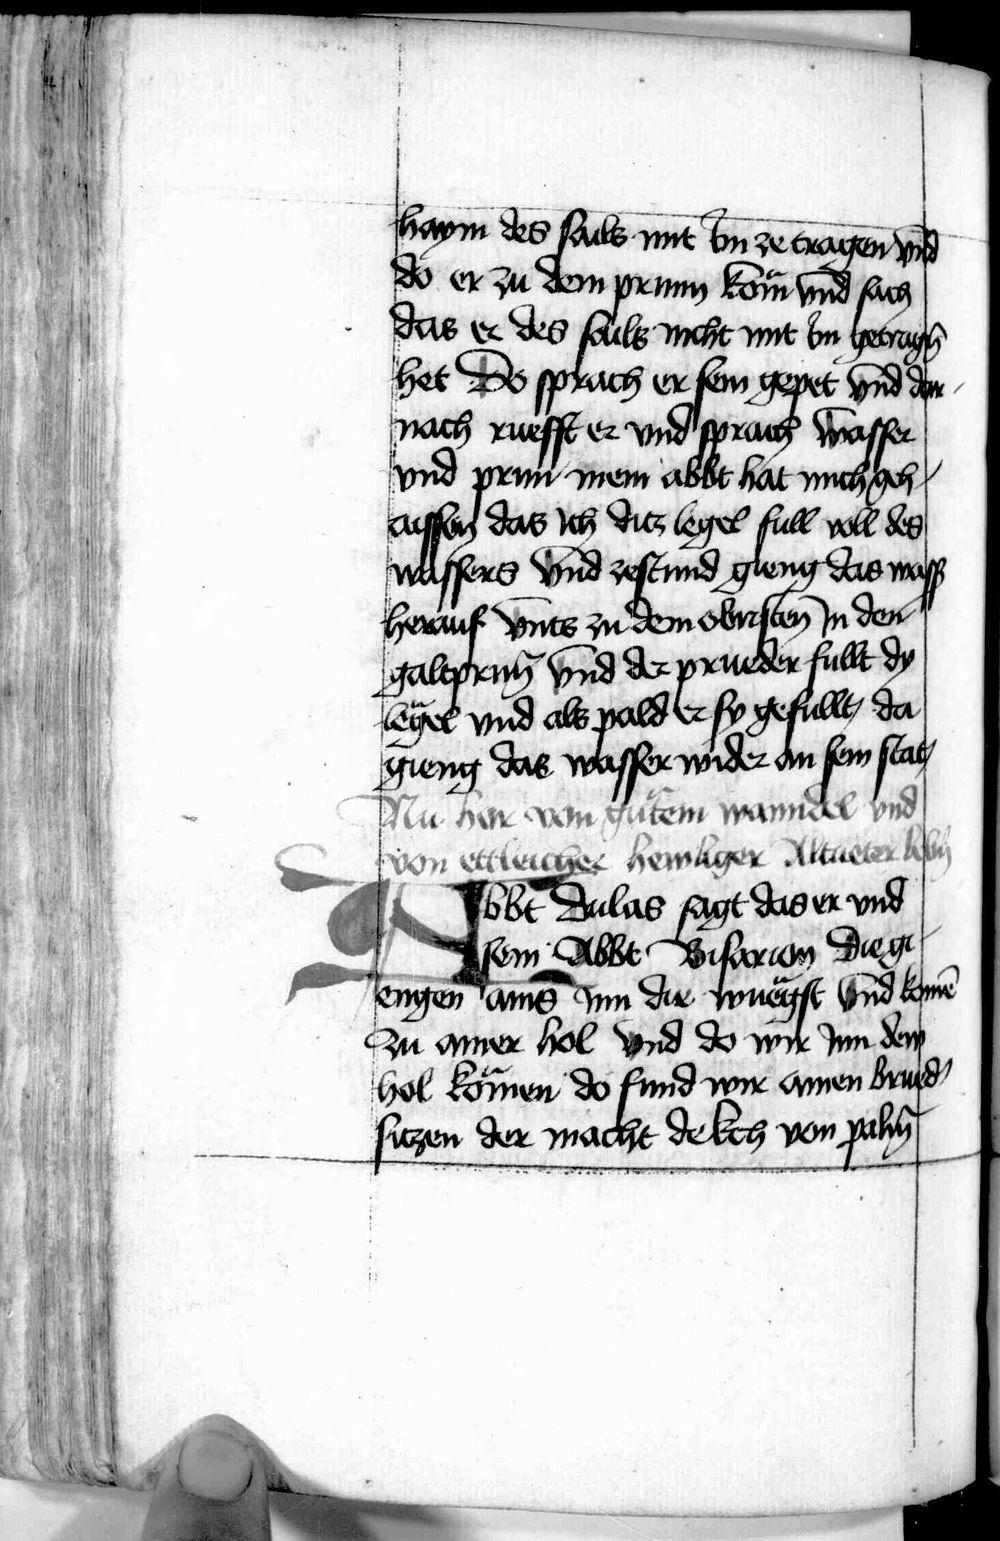 haym des sails mit im ze tragen vnd
do er zu dem prunn kom̄ vnd sach
das er des sails nicht mit im getragn̄
het Do sprach er sein gepet vnd dar-
nach ruefft er vnd sprach wasser
vnd prun mein abbt hat mich geh-
aissen das ich ditz legel full voll des
wassers vnd zestund gieng das wass̄
herauf vnts zu dem obristen in den
galtprun̄ vnd der prueder fullt dy
legel vnd als pald er sy gefullt da
gieng das wasser wider an sein stat
Nu hor von gutem wanndel vnd
von ettleicher heyliger Altueter lebn̄
Abbt Dulas sagt das er vnd
sein Abbt Bisarion die gi-
engen ains inn die wuegst vnd komē
zu ainer hol vnd do wir inn dew
hol kom̄en do fund wir ainen brued̄
sitzen der macht dekch von palm̄